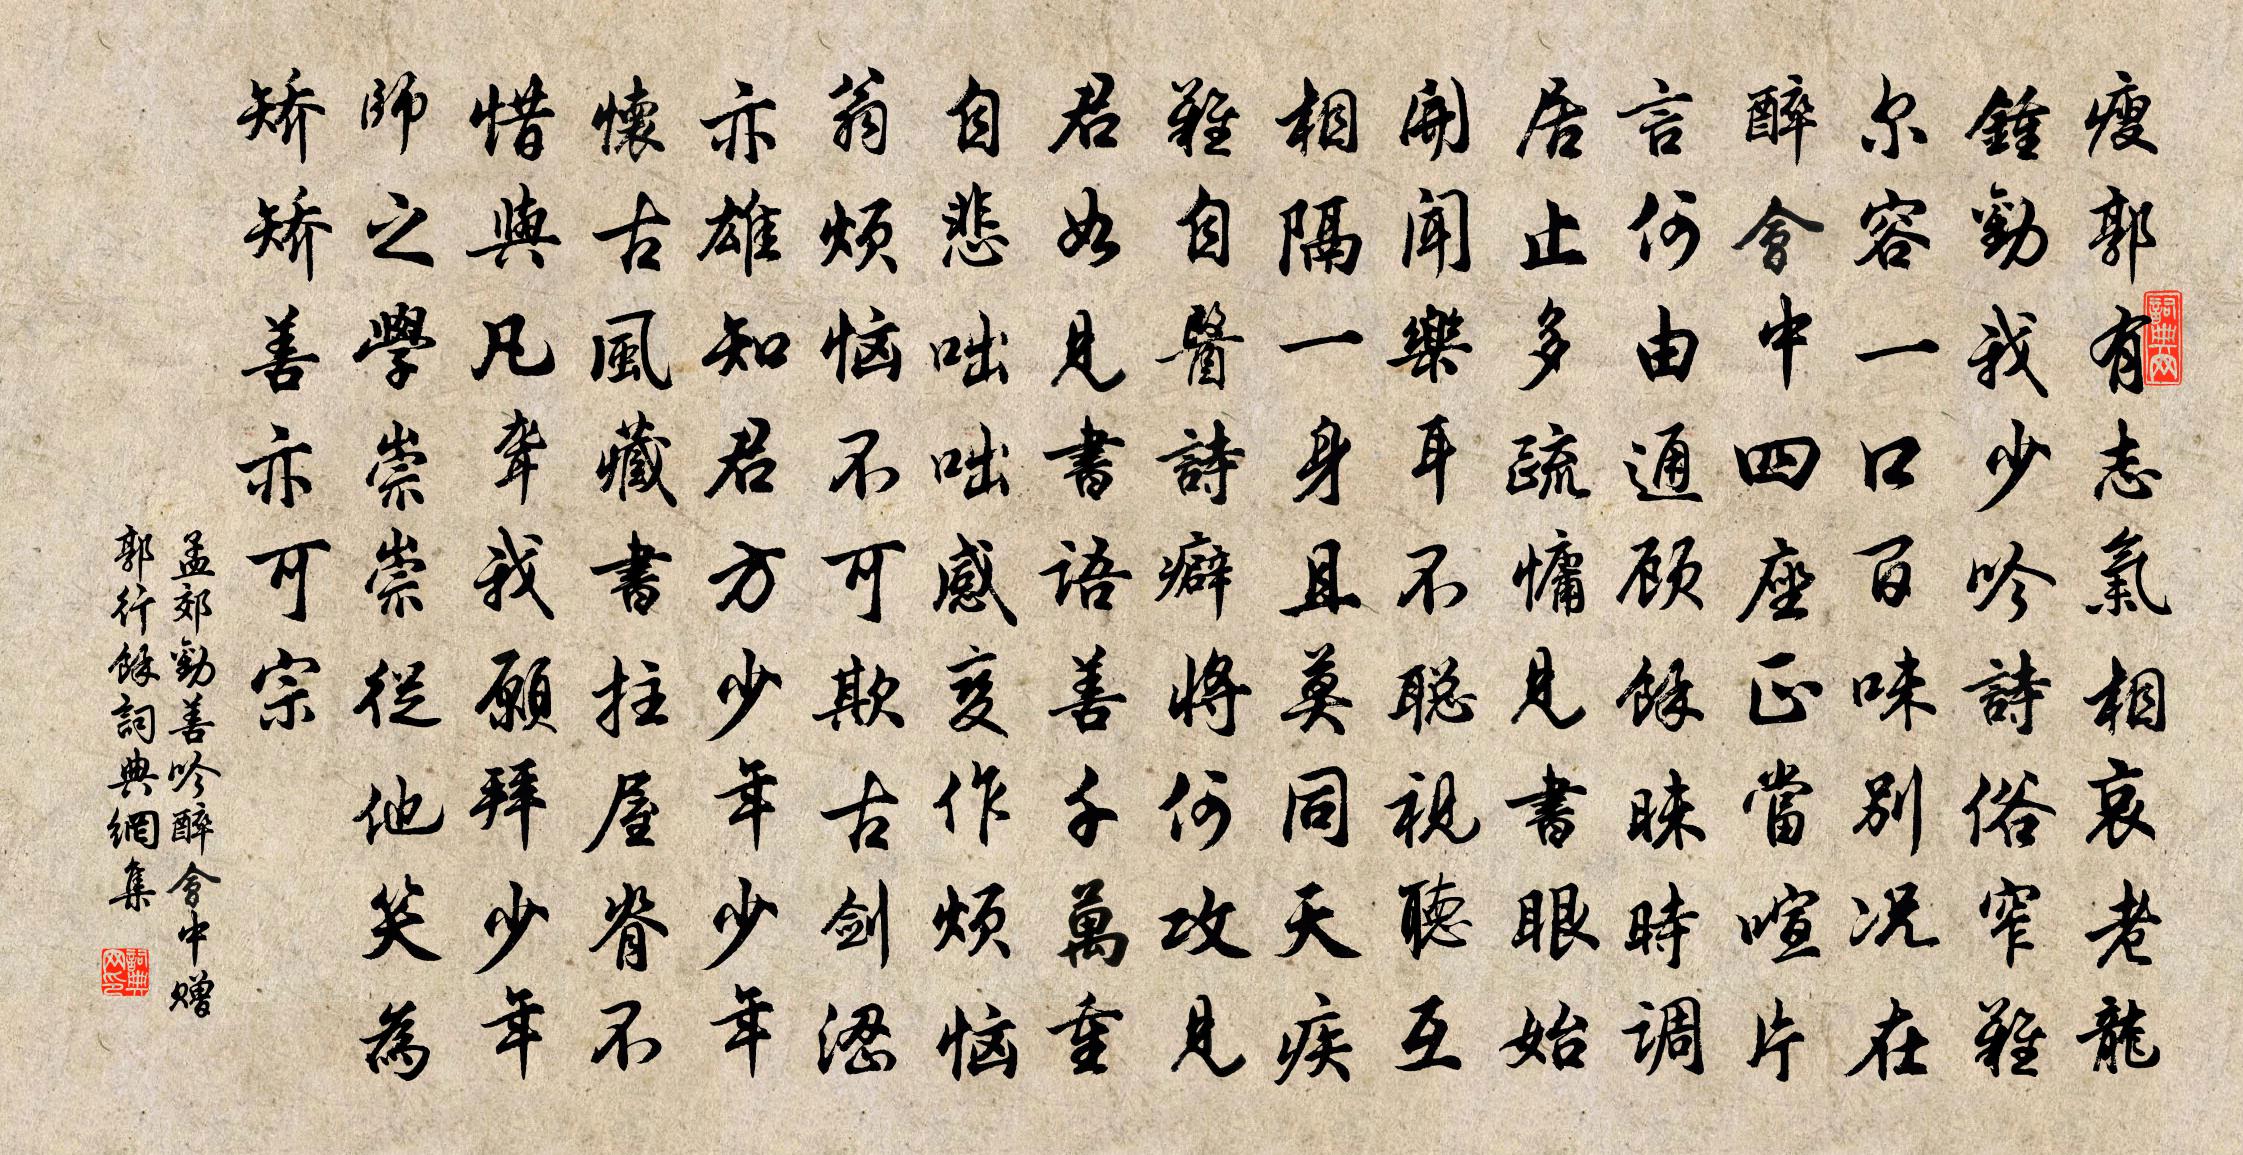 瘦郭有志氣相哀老龍
鍾勸我少吟詩俗窄難
尔容一口百味别况在
醉會中四座正當喧片
言何由通顾餘昧時调
居止多疏慵見書眼始
開聞樂耳不聪視聽互
相隔一身且莫同天疾
難自醫詩癖將何攻見
君如見書語善千萬重
自悲咄咄感変作烦恼
翁烦恼不可欺古剑澀
亦雄知君方少年少年
懷古風藏書拄屋脊不
惜與凡聋我願拜少年
師之學崇崇從他笑為
矫矫善亦可宗
孟郊勸善吟醉會中赠
郭行餘詞典網集
詞典网
詞典网印